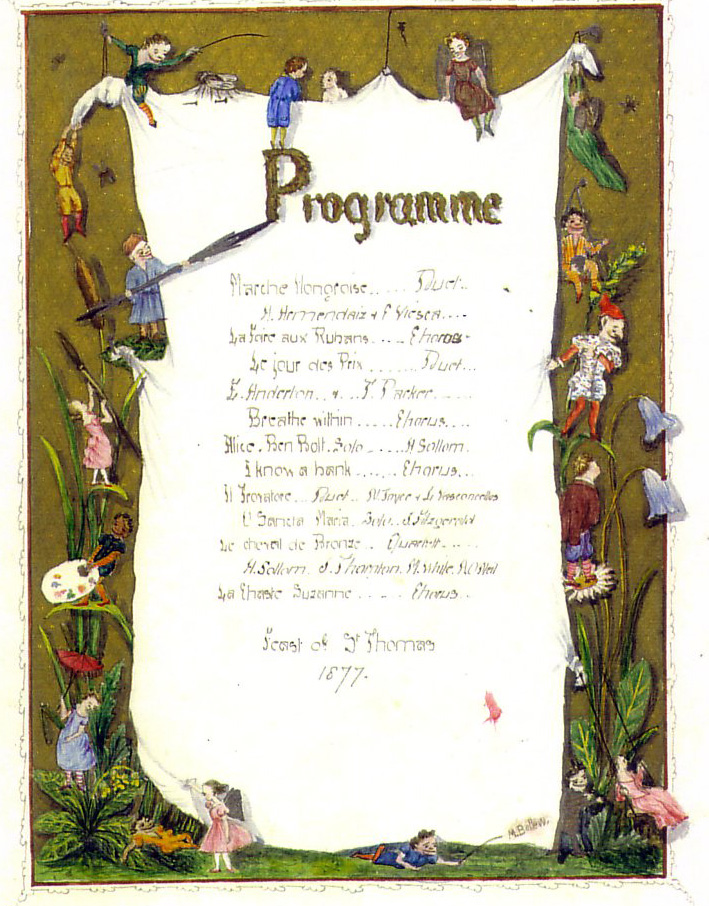 Programme
Marche Hongroise..... Duet..
H. Armendaiz & F Viesca....
La Foire aux Rubans.... Chorus.
Le jour des Prix....... Duet...
E. Anderton.. &.. T. Parker......
Breathe within..... Chorus....
Alice. Ben Bolt. Solo..... H Sollom.
I know a bank...... Chorus...
Il Trovatore... Duet.. M Joyce & L. Vasconcellos
O Sancta Maria.. Solo.. S. Fitzgerald
Le cheval de Bronze.. Quartett.....
H. Sollom. J. Thornton. M. White. R. O'Neil
La Chaste Suzanne..... Chorus..
Feast of St Thomas
1877.